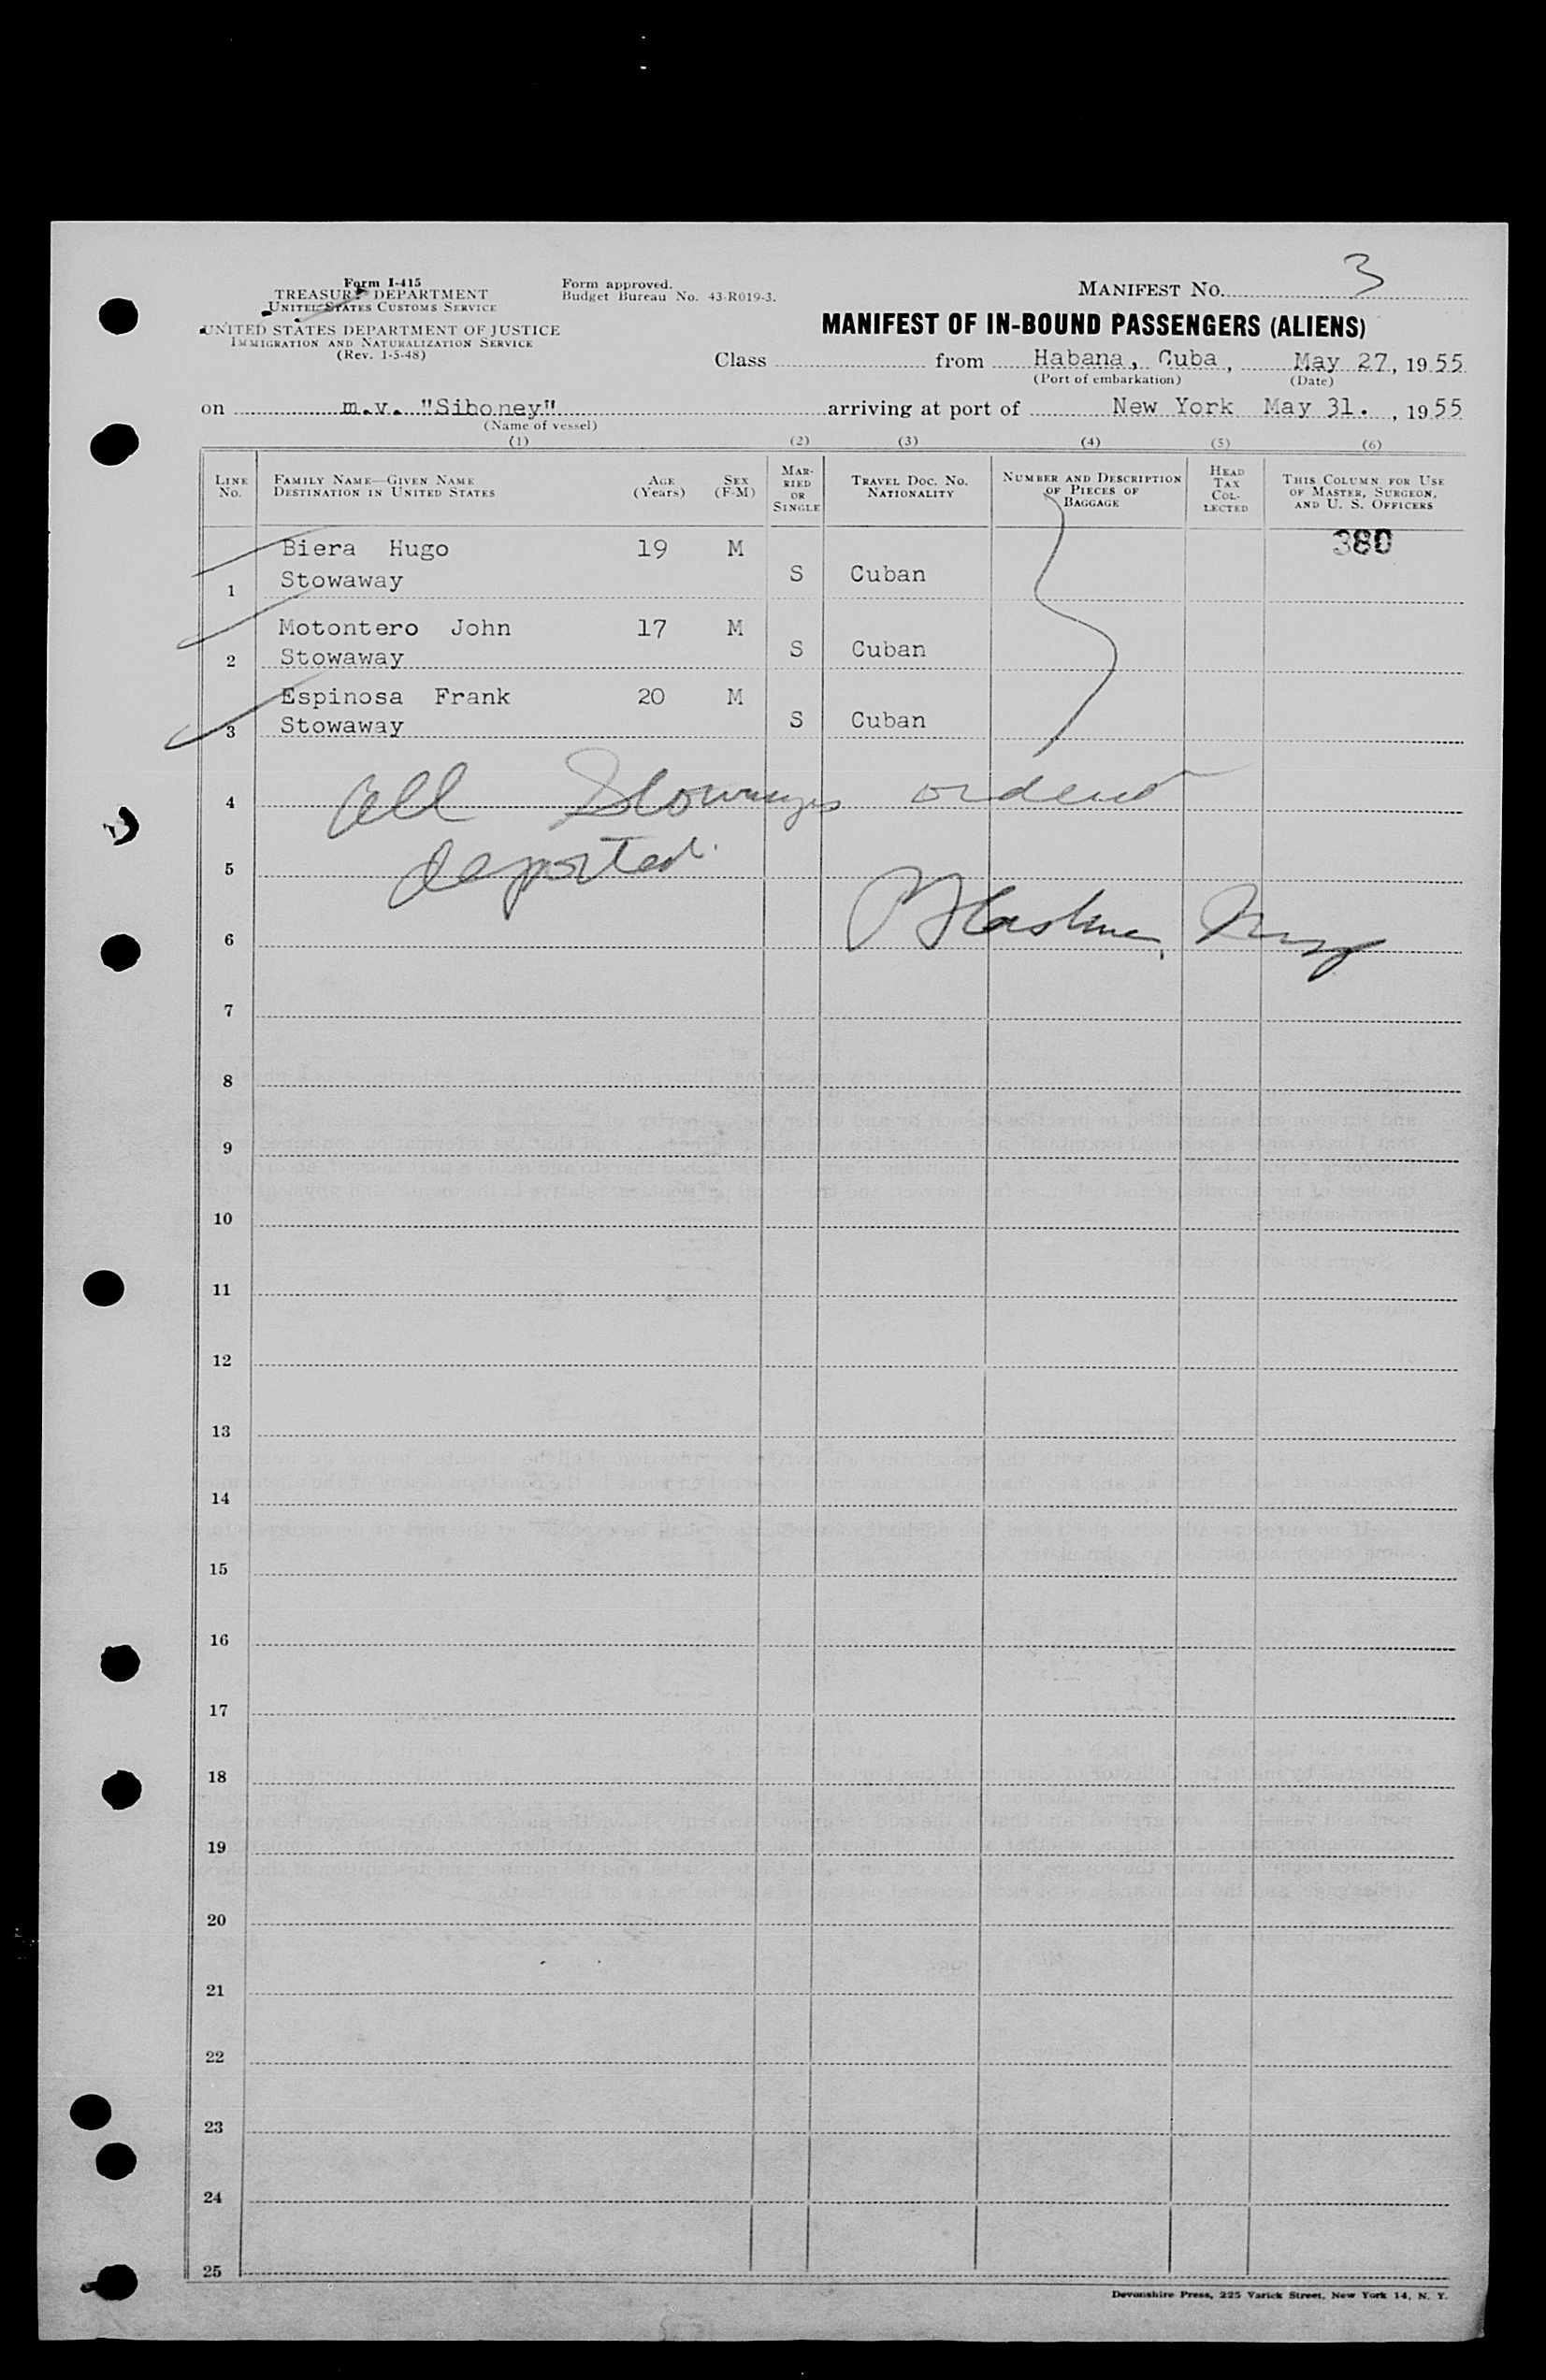 Form I-415
TREASURY DEPARTMENT
UNITED STATES CUSTOMS SERVICE
UNITED STATES DEPARTMENT OF JUSTICE
IMMIGRATION AND NATURALIZATION SERVICE
(Rev. 1-5-48)
Form approved.
Budget Bureau No. 43-R019-3.
MANIFEST NO. 3
MANIFEST OF IN-BOUND PASSENGERS (ALIENS)
Class from Habana, Cuba, May 27, 1955
(Port of embarkation) (Date)
on m.v. "Siboney" arriving at port of New York May 31. , 1955
(Name of vessel)
(1) (2) (3) (4) (5) (6)
LINE No.
FAMILY NAME—GIVEN NAME
DESTINATION IN UNITED STATES
AGE (Years)
SEX (F-M)
MAR-RIED OR SINGLE
TRAVEL DOC. NO. NATIONALITY
NUMBER AND DESCRIPTION OF PIECES OF BAGGAGE
HEAD TAX COL-LECTED
THIS COLUMN FOR USE OF MASTER, SURGEON, AND U. S. OFFICERS
380
Biera Hugo 19 M
1 Stowaway S Cuban
Motontero John 17 M
2 Stowaway S Cuban
Espinosa Frank 20 M
3 Stowaway S Cuban
4 All Stowaways ordered
5 deported.
6
7
8
9
10
11
12
13
14
15
16
17
18
19
20
21
22
23
24
25
Devonshire Press, 225 Varick Street, New York 14, N. Y.